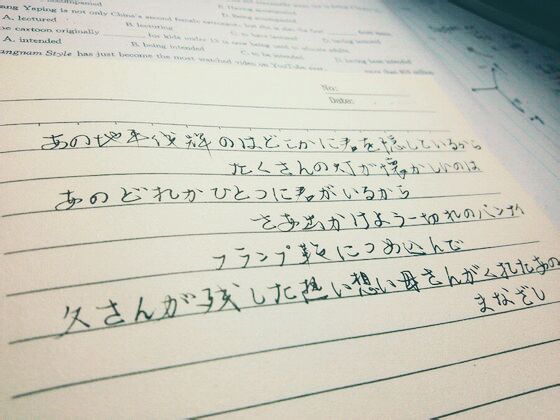 accompanied
ng Yaping is not only China's second female astronaut, but she is also the first
A. lectured B. lecturing
cartoon originally for kids under 12 is now being used to educate adults.
A. intended B. being intended C. to be intended
angnam Style has just become the most watched video on YouTube more than
No:
Date:
あの地平のはどこかに君を隠しているから
たくさんの灯が懐かしいのは
あのどれかひとつに君がいるから
さあ出かけよう一切れのパンナイ
フランプ鞄につめ込んで
父さんが残した熱い想い母さんがくれたあの
まなざし